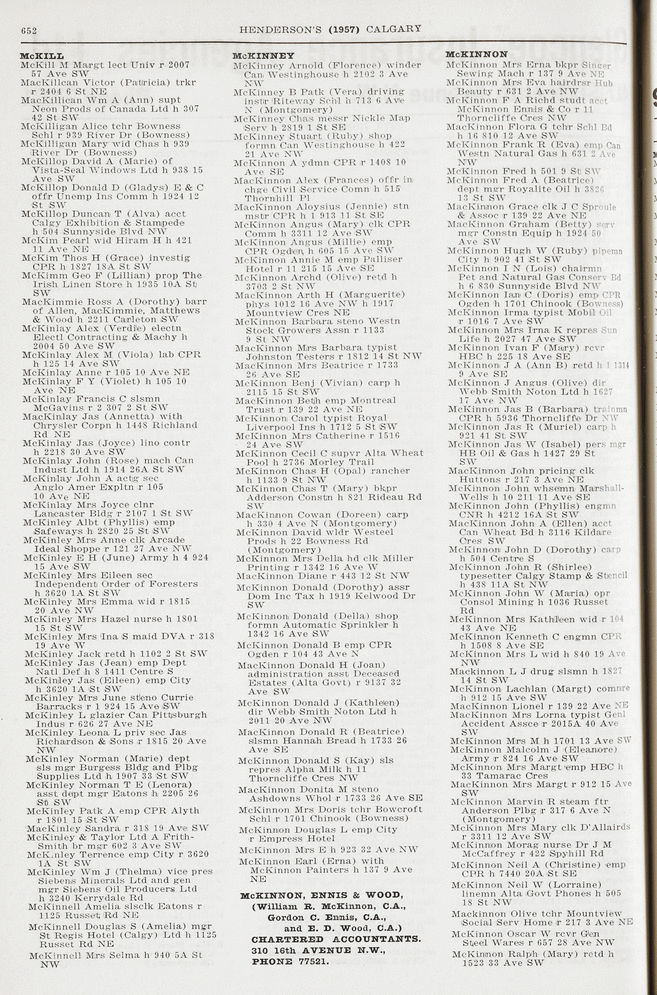 652
HENDERSON'S (1957) CALGARY
McKILL
McKill M Margt lect Univ r 2007
57 Ave SW
MacKillcan Victor (Patricia) trkr
r 2404 6 St NE
MacKillican Wm A (Ann) supt
Neon Prods of Canada Ltd h 307
42 St SW
McKilligan Alice tchr Bowness
Schl r 939 River Dr (Bowness)
McKilligan Mary wid Chas h 939
River Dr (Bowness)
McKillop David A (Marie) of
Vista-Seal Windows Ltd h 938 15
Ave SW
McKillop Donald D (Gladys) E & C
offr Unemp Ins Comm h 1924 12
St SW
McKillop Duncan T (Alva) acct
Calgy Exhibition & Stampede
h 504 Sunnyside Blvd NW
McKim Pearl wid Hiram H h 421
11 Ave NE
McKim Thos H (Grace) investig
CPR h 1827 18A St SW
McKimm Geo F (Lillian) prop The
Irish Linen Store h 1935 10A St
SW
MacKimmie Ross A (Dorothy) barr
of Allen, MacKimmie, Matthews
& Wood h 2211 Carleton SW
McKinlay Alex (Verdie) electn
Electl Contracting & Machy h
2004 50 Ave SW
McKinlay Alex M (Viola) lab CPR
h 125 14 Ave SW
McKinlay Anne r 105 10 Ave NE
McKinlay F Y (Violet) h 105 10
Ave NE
McKinlay Francis C slsmn
McGavins r 2 307 2 St SW
MacKinlay Jas (Annetta) with
Chrysler Corpn h 1448 Richland
Rd NE
McKinlay Jas (Joyce) lino contr
h 2218 30 Ave SW
McKinlay John (Rose) mach Can
Indust Ltd h 1914 26A St SW
McKinlay John A actg sec
Anglo Amer Expltn r 105
10 Ave NE
McKinlay Mrs Joyce clnr
Lancaster Bldg r 2107 1 St SW
McKinley Albt (Phyllis) emp
Safeways h 2820 25 St SW
McKinley Mrs Anne clk Arcade
Ideal Shoppe r 121 27 Ave NW
McKinley E H (June) Army h 4 924
15 Ave SW
McKinley Mrs Eileen sec
Independent Order of Foresters
h 3620 1A St SW
McKinley Mrs Emma wid r 1815
20 Ave NW
McKinley Mrs Hazel nurse h 1801
15 St SW
McKinley Mrs Ina S maid DVA r 318
19 Ave W
McKinley Jack retd h 1102 2 St NW
McKinley Jas (Jean) emp Dept
Natl Def h 8 1411 Centre S
McKinley Jas (Eileen) emp City
h 3620 1A St SW
McKinley Mrs June steno Currie
Barracks r 1 924 15 Ave SW
McKinley L glazier Can Pittsburgh
Indus r 626 27 Ave NE
McKinley Leona L priv sec Jas
Richardson & Sons r 1815 20 Ave
NW
McKinley Norman (Marie) dept
sls mgr Burgess Bldg and Plbg
Supplies Ltd h 1907 33 St SW
McKinley Norman T E (Lenora)
asst dept mgr Eatons h 2205 26
St SW
McKinley Patk A emp CPR Alyth
r 1801 15 St SW
MacKinley Sandra r 318 19 Ave SW
McKinley & Taylor Ltd A Frith-
Smith br mgr 602 3 Ave SW
McKinley Terrence emp City r 3620
1A St SW
McKinley Wm J (Thelma) vice pres
Siebens Minerals Ltd and gen
mgr Siebens Oil Producers Ltd
h 3240 Kerrydale Rd
McKinnell Amelia slsclk Eatons r
1125 Russet Rd NE
McKinnell Douglas S (Amelia) mgr
St Regis Hotel (Calgy) Ltd h 1125
Russet Rd NE
McKinnell Mrs Selma h 940 5A St
NW
McKINNEY
McKinney Arnold (Florence) winder
Can Westinghouse h 2102 3 Ave
NW
McKinney B Patk (Vera) driving
instr Riteway Schl h 713 6 Ave
N (Montgomery)
McKinney Chas messr Nickle Map
Serv h 2819 1 St SE
McKinney Stuart (Ruby) shop
formn Can Westinghouse h 422
21 Ave NW
McKinnon A ydmn CPR r 1408 10
Ave SE
MacKinnon Alex (Frances) offr in
chge Civil Service Comn h 515
Thornhill Pl
MacKinnon Aloysius (Jennie) stn
mstr CPR h 1 913 11 St SE
McKinnon Angus (Mary) clk CPR
Comm h 3311 12 Ave SW
McKinnon Angus (Millie) emp
CPR Ogden h 605 15 Ave SW
McKinnon Annie M emp Palliser
Hotel r 11 215 15 Ave SE
McKinnon Archd (Olive) retd h
3703 2 St NW
MacKinnon Arth H (Marguerite)
phys 1012 16 Ave NW h 1917
Mountview Cres NE
MacKinnon Barbara steno Westn
Stock Growers Assn r 1133
9 St NW
MacKinnon Mrs Barbara typist
Johnston Testers r 1812 14 St NW
MacKinnon Mrs Beatrice r 1733
26 Ave SE
McKinnon Benj (Vivian) carp h
2115 15 St SW
MacKinnon Beth emp Montreal
Trust r 139 22 Ave NE
MacKinnon Carol typist Royal
Liverpool Ins h 1712 5 St SW
McKinnon Mrs Catherine r 1516
24 Ave SW
McKinnon Cecil C supvr Alta Wheat
Pool h 2736 Morley Trail
McKinnon Chas H (Opal) rancher
h 1133 9 St NW
McKinnon Chas T (Mary) bkpr
Adderson Constn h 821 Rideau Rd
SW
MacKinnon Cowan (Doreen) carp
h 330 4 Ave N (Montgomery)
McKinnon David wldr Westeel
Prods h 22 Bowness Rd
(Montgomery)
McKinnon Mrs Della hd clk Miller
Printing r 1342 16 Ave W
MacKinnon Diane r 443 12 St NW
McKinnon Donald (Dorothy) assr
Dom Inc Tax h 1919 Kelwood Dr
SW
McKinnon Donald (Della) shop
formn Automatic Sprinkler h
1342 16 Ave SW
McKinnon Donald B emp CPR
Ogden r 104 43 Ave N
MacKinnon Donald H (Joan)
administration asst Deceased
Estates (Alta Govt) r 9137 32
Ave SW
McKinnon Donald J (Kathleen)
dir Webb Smith Noton Ltd h
2011 20 Ave NW
MacKinnon Donald R (Beatrice)
slsmn Hannah Bread h 1733 26
Ave SE
McKinnon Donald S (Kay) sls
repres Alpha Milk h 11
Thorncliffe Cres NW
MacKinnon Donita M steno
Ashdowns Whol r 1733 26 Ave SE
McKinnon Mrs Doris tchr Bowcroft
Schl r 1701 Chinook (Bowness)
McKinnon Douglas L emp City
r Empress Hotel
McKinnon Mrs E h 923 32 Ave NW
McKinnon Earl (Erna) with
McKinnon Painters h 137 9 Ave
NE
McKINNON, ENNIS & WOOD,
(William R. McKinnon, C.A.,
Gordon C. Ennis, C.A.,
and E. D. Wood, C.A.)
CHARTERED ACCOUNTANTS.
310 16th AVENUE N.W.,
PHONE 77521.
McKINNON
McKinnon Mrs Erna bkpr Singer
Sewing Mach r 137 9 Ave NE
McKinnon Mrs Eva hairdrsr Hub
Beauty r 631 2 Ave NW
McKinnon F A Richd studt acct
McKinnon Ennis & Co r 11
Thorncliffe Cres NW
MacKinnon Flora G tchr Schl Bd
h 16 810 12 Ave SW
McKinnon Frank R (Eva) emp Can
Westn Natural Gas h 631 2 Ave
NW
McKinnon Fred h 501 9 St SW
McKinnon Fred A (Beatrice)
dept mgr Royalite Oil h 3826
13 St SW
MacKinnon Grace clk J C Sproule
& Assoc r 139 22 Ave NE
MacKinnon Graham (Betty) serv
mgr Constn Equip h 1924 50
Ave SW
McKinnon Hugh W (Ruby) pipemn
City h 902 41 St SW
McKinnon I N (Lois) chairmn
Pet and Natural Gas Conserv Bd
h 6 830 Sunnyside Blvd NW
McKinnon Ian C (Doris) emp CPR
Ogden h 1701 Chinook (Bowness)
McKinnon Irma typist Mobil Oil
r 1016 7 Ave SW
McKinnon Mrs Irna K repres Sun
Life h 2027 47 Ave SW
McKinnon Ivan F (Mary) rcvr
HBC h 225 18 Ave SE
McKinnon J A (Ann B) retd h 1 1314
9 Ave SE
McKinnon J Angus (Olive) dir
Webb Smith Noton Ltd h 1627
17 Ave NW
McKinnon Jas B (Barbara) trainmn
CPR h 5936 Thorncliffe Dr NW
McKinnon Jas R (Muriel) carp h
921 41 St SW
McKinnon Jas W (Isabel) pers mgr
HB Oil & Gas h 1427 29 St
SW
MacKinnon John pricing clk
Huttons r 217 3 Ave NE
McKinnon John whsemn Marshall-
Wells h 10 211 11 Ave SE
McKinnon John (Phyllis) engmn
CNR h 4212 16A St SW
MacKinnon John A (Ellen) acct
Can Wheat Bd h 3116 Kildare
Cres SW
McKinnon John D (Dorothy) carp
h 504 Centre S
McKinnon John R (Shirlee)
typesetter Calgy Stamp & Stencil
h 438 11A St NW
McKinnon John W (Maria) opr
Consol Mining h 1036 Russet
Rd
McKinnon Mrs Kathleen wid r 104
43 Ave NE
McKinnon Kenneth C engmn CPR
h 1508 8 Ave SE
McKinnon Mrs L wid h 840 19 Ave
NW
Mackinnon L J drug slsmn h 1827
14 St SW
McKinnon Lachlan (Margt) comnre
h 912 15 Ave SW
MacKinnon Lionel r 139 22 Ave NE
MacKinnon Mrs Lorna typist Genl
Accident Assce r 2015A 40 Ave
SW
McKinnon Mrs M h 1701 13 Ave SW
McKinnon Malcolm J (Eleanore)
Army r 824 16 Ave SW
McKinnon Mrs Margt emp HBC h
33 Tamarac Cres
McKinnon Mrs Margt r 912 15 Ave
SW
McKinnon Marvin R steam ftr
Anderson Plbg r 317 6 Ave N
(Montgomery)
McKinnon Mrs Mary clk D'Allairds
r 3311 12 Ave SW
McKinnon Morag nurse Dr J M
McCaffrey r 422 Spyhill Rd
McKinnon Neil A (Christine) emp
CPR h 7440 20A St SE
McKinnon Neil W (Lorraine)
linemn Alta Govt Phones h 505
18 St NW
Mackinnon Olive tchr Mountview
Social Serv Home r 217 3 Ave NE
McKinnon Oscar W rcvr Gen
Steel Wares r 657 28 Ave NW
McKinnon Ralph (Mary) retd h
1523 33 Ave SW